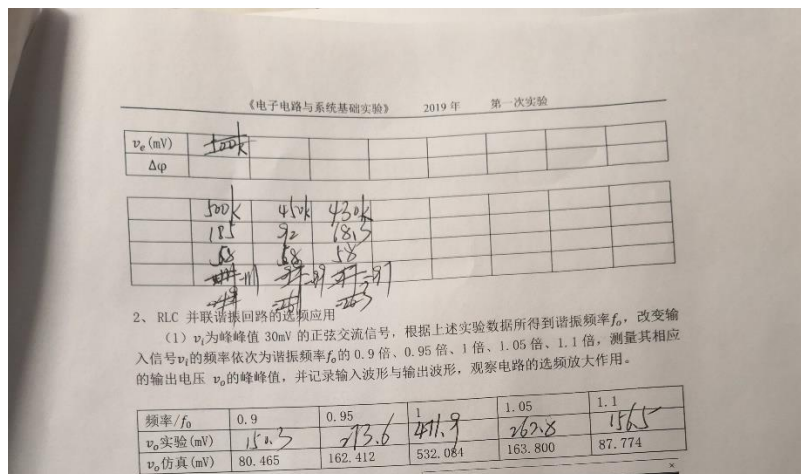 《电子电路与系统基础实验》 2019 年 第一次实验
vₑ(mV)
Δφ
500k 450k 430k
185 92 68.3
58 58
2、 RLC 并联谐振回路的选频应用
(1) vᵢ为峰峰值 30mV 的正弦交流信号，根据上述实验数据所得到谐振频率fₒ，改变输
入信号vᵢ的频率依次为谐振频率fₒ的 0.9 倍、0.95 倍、1 倍、1.05 倍、1.1 倍，测量其相应
的输出电压 vₒ的峰峰值，并记录输入波形与输出波形，观察电路的选频放大作用。
频率/f₀ 0.9 0.95 1 1.05 1.1
vₒ实验(mV) 150.3 273.6 471.9 262.8 156.5
vₒ仿真(mV) 80.465 162.412 532.084 163.800 87.774